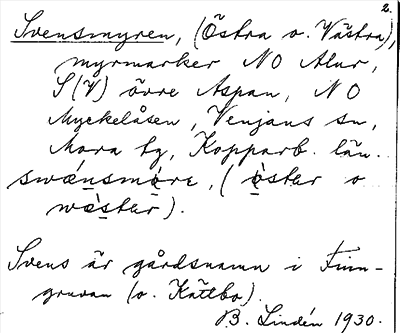 2.
Svensmyren, (Östra o. Västra),
myrmarker NO Alur,
S(V) övre Aspan, NO
Myckelåsen, Venjans sn,
Mora tg, Kopparb. län.
swænsmỳre, (östər o
wæ̀stər).
Svens är gårdsnamn i Finn-
gruvan (o. Kättbo).
B. Lindén 1930.